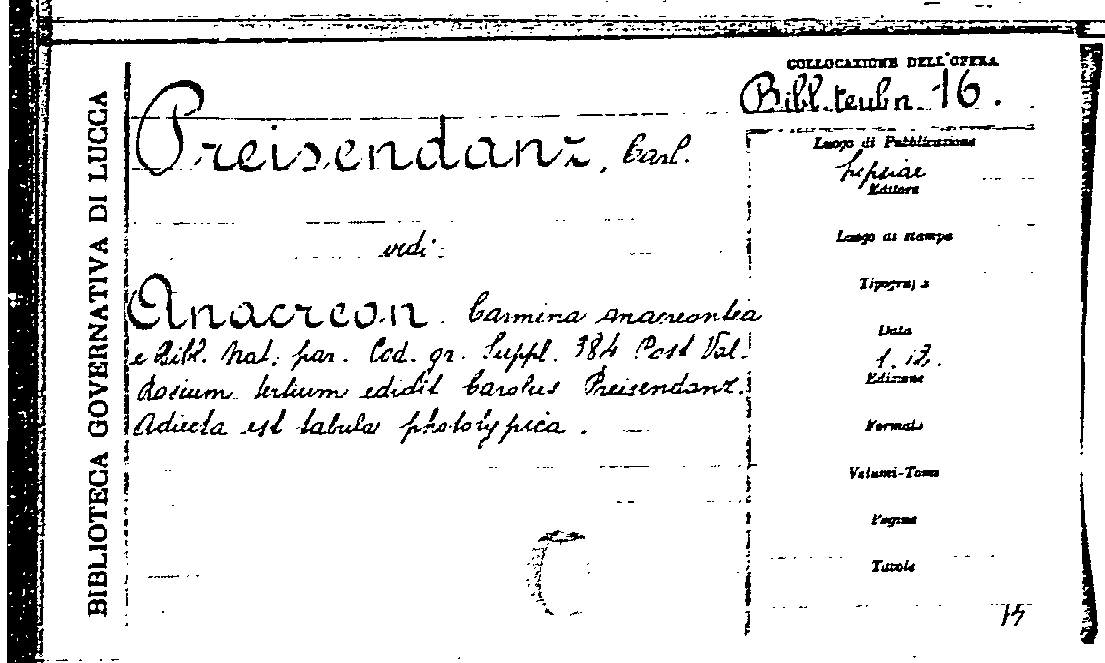 BIBLIOTECA GOVERNATIVA DI LUCCA
COLLOCAZIONE DELL'OPERA
Bibl. teubn. 16.
Preisendanz, Carl.
vedi
Anacreon. Carmina anacreontea
e Bibl. Nat. par. Cod. gr. Suppl. 384 Post Val.
Rosium tertium edidit Carolus Preisendanz.
Adiecta est tabula phototypica.
Luogo di Pubblicazione
Lipsiae
Editore
Luogo di stampa
Tipografia
Data
Edizione
Formato
Volumi-Tomo
Pagine
Tavole